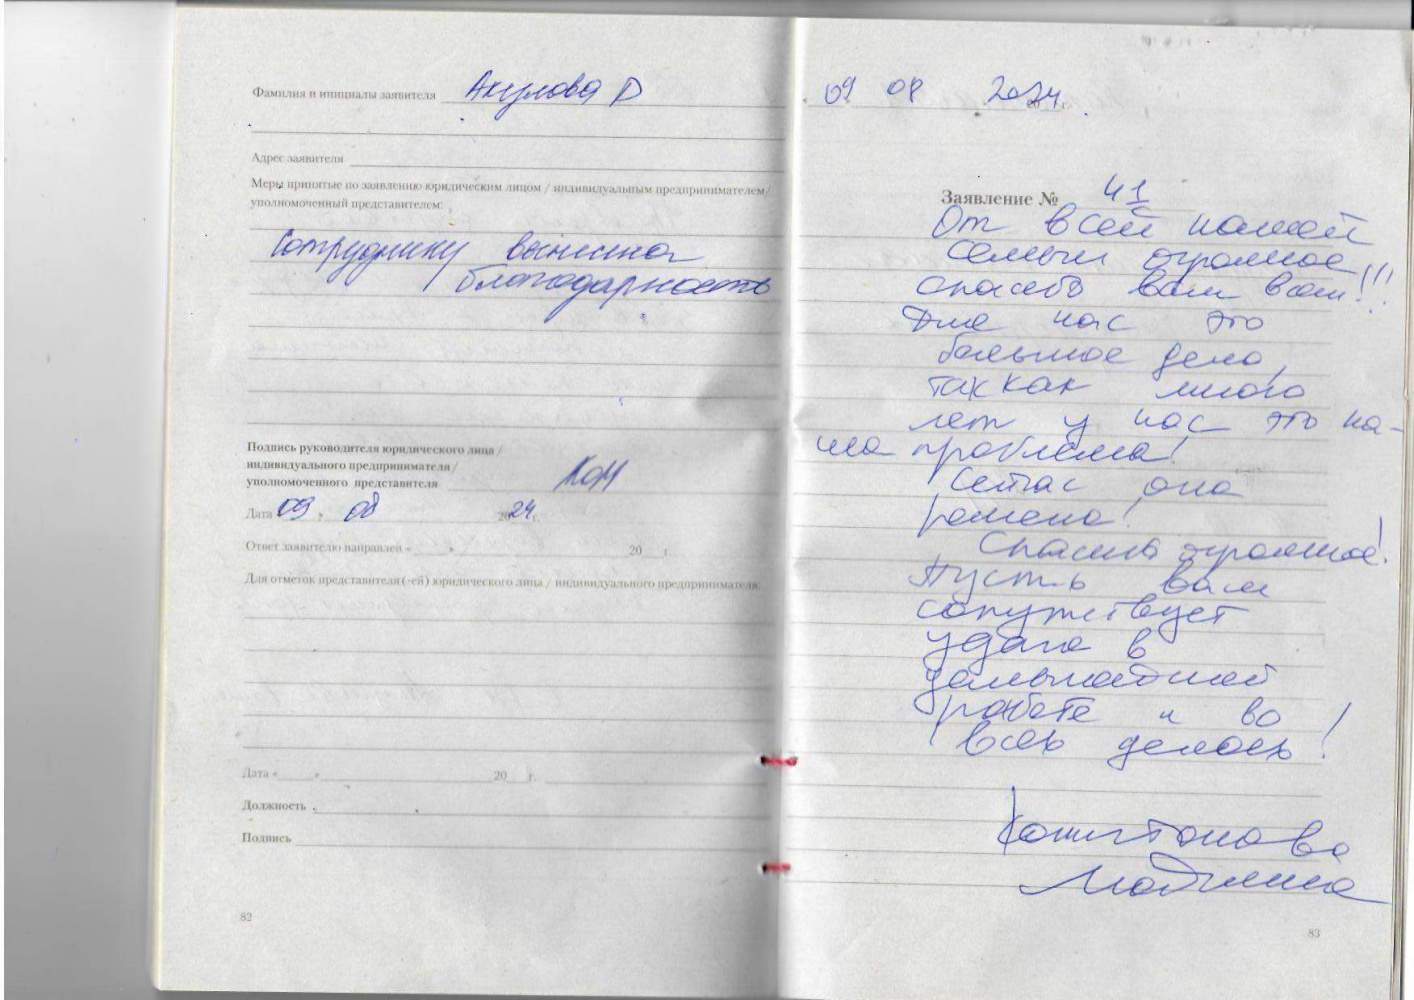 Фамилия и инициалы заявителя Акулова D
Адрес заявителя
Меры принятые по заявлению юридическим лицом / индивидуальным предпринимателем/
уполномоченный представителем:
Сотруднику вынесена
благодарность
Подпись руководителя юридического лица /
индивидуального предпринимателя /
уполномоченного представителя
Дата 09 » 08 2024 г.
Ответ заявителю направлен « » 20 г.
Для отметок представителя (-ей) юридического лица / индивидуального предпринимателя:
Дата « » 20 г.
Должность
Подпись
82
09 08 2024 г.
Заявление № 41
От всей нашей
семьи огромное
спасибо вам всем!!!
Для нас это
большое дело,
так как много
лет у нас это на-
ша проблема!
Сейчас она
решена!
Спасибо огромное!
Пусть вам
сопутствует
удача в
дальнейшей
работе и во
всех делах!
83